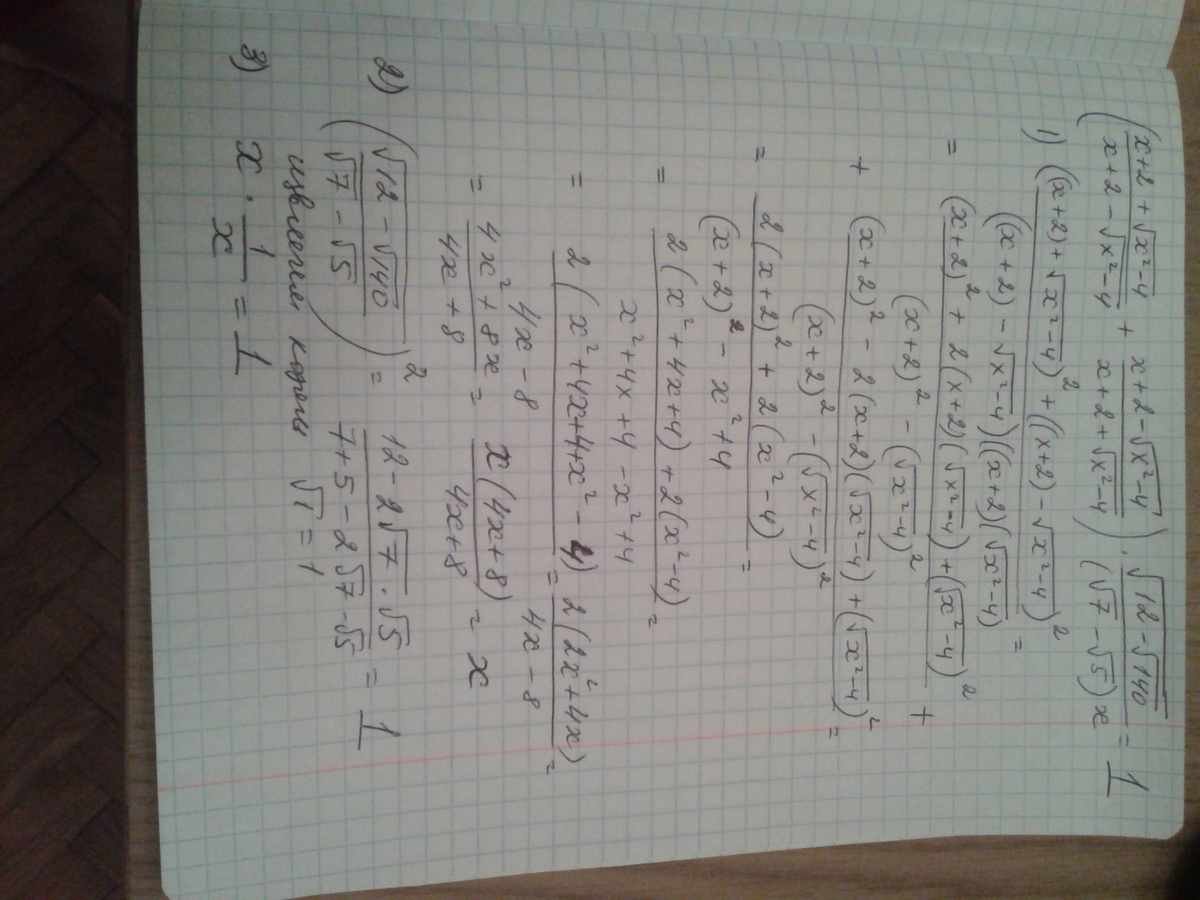 (x+2+√(x²-4) / x+2-√(x²-4) + x+2-√(x²-4) / x+2+√(x²-4)) · √(12-√140) / (√7-√5)x = 1
1) ((x+2)+√(x²-4))² + ((x+2)-√(x²-4))² / ((x+2)-√(x²-4))((x+2)(√(x²-4)) =
= (x+2)² + 2(x+2)(√(x²-4)) + (√(x²-4))² / (x+2)² - (√(x²-4))² +
+ (x+2)² - 2(x+2)(√(x²-4)) + (√(x²-4))² / (x+2)² - (√(x²-4))² =
= 2(x+2)² + 2(x²-4) / (x+2)² - x²+4 =
= 2(x²+4x+4)+2(x²-4) / x²+4x+4-x²+4 =
= 2(x²+4x+4+x²-4) / 4x-8 = 2(2x²+4x) / 4x-8 =
= 4x²+8x / 4x+8 = x(4x+8) / 4x+8 = x
2) (√(12-√140) / √7-√5)² = 12-2√7·√5 / 7+5-2√7-√5 = 1
извлечем корень √1 = 1
3) x · 1/x = 1